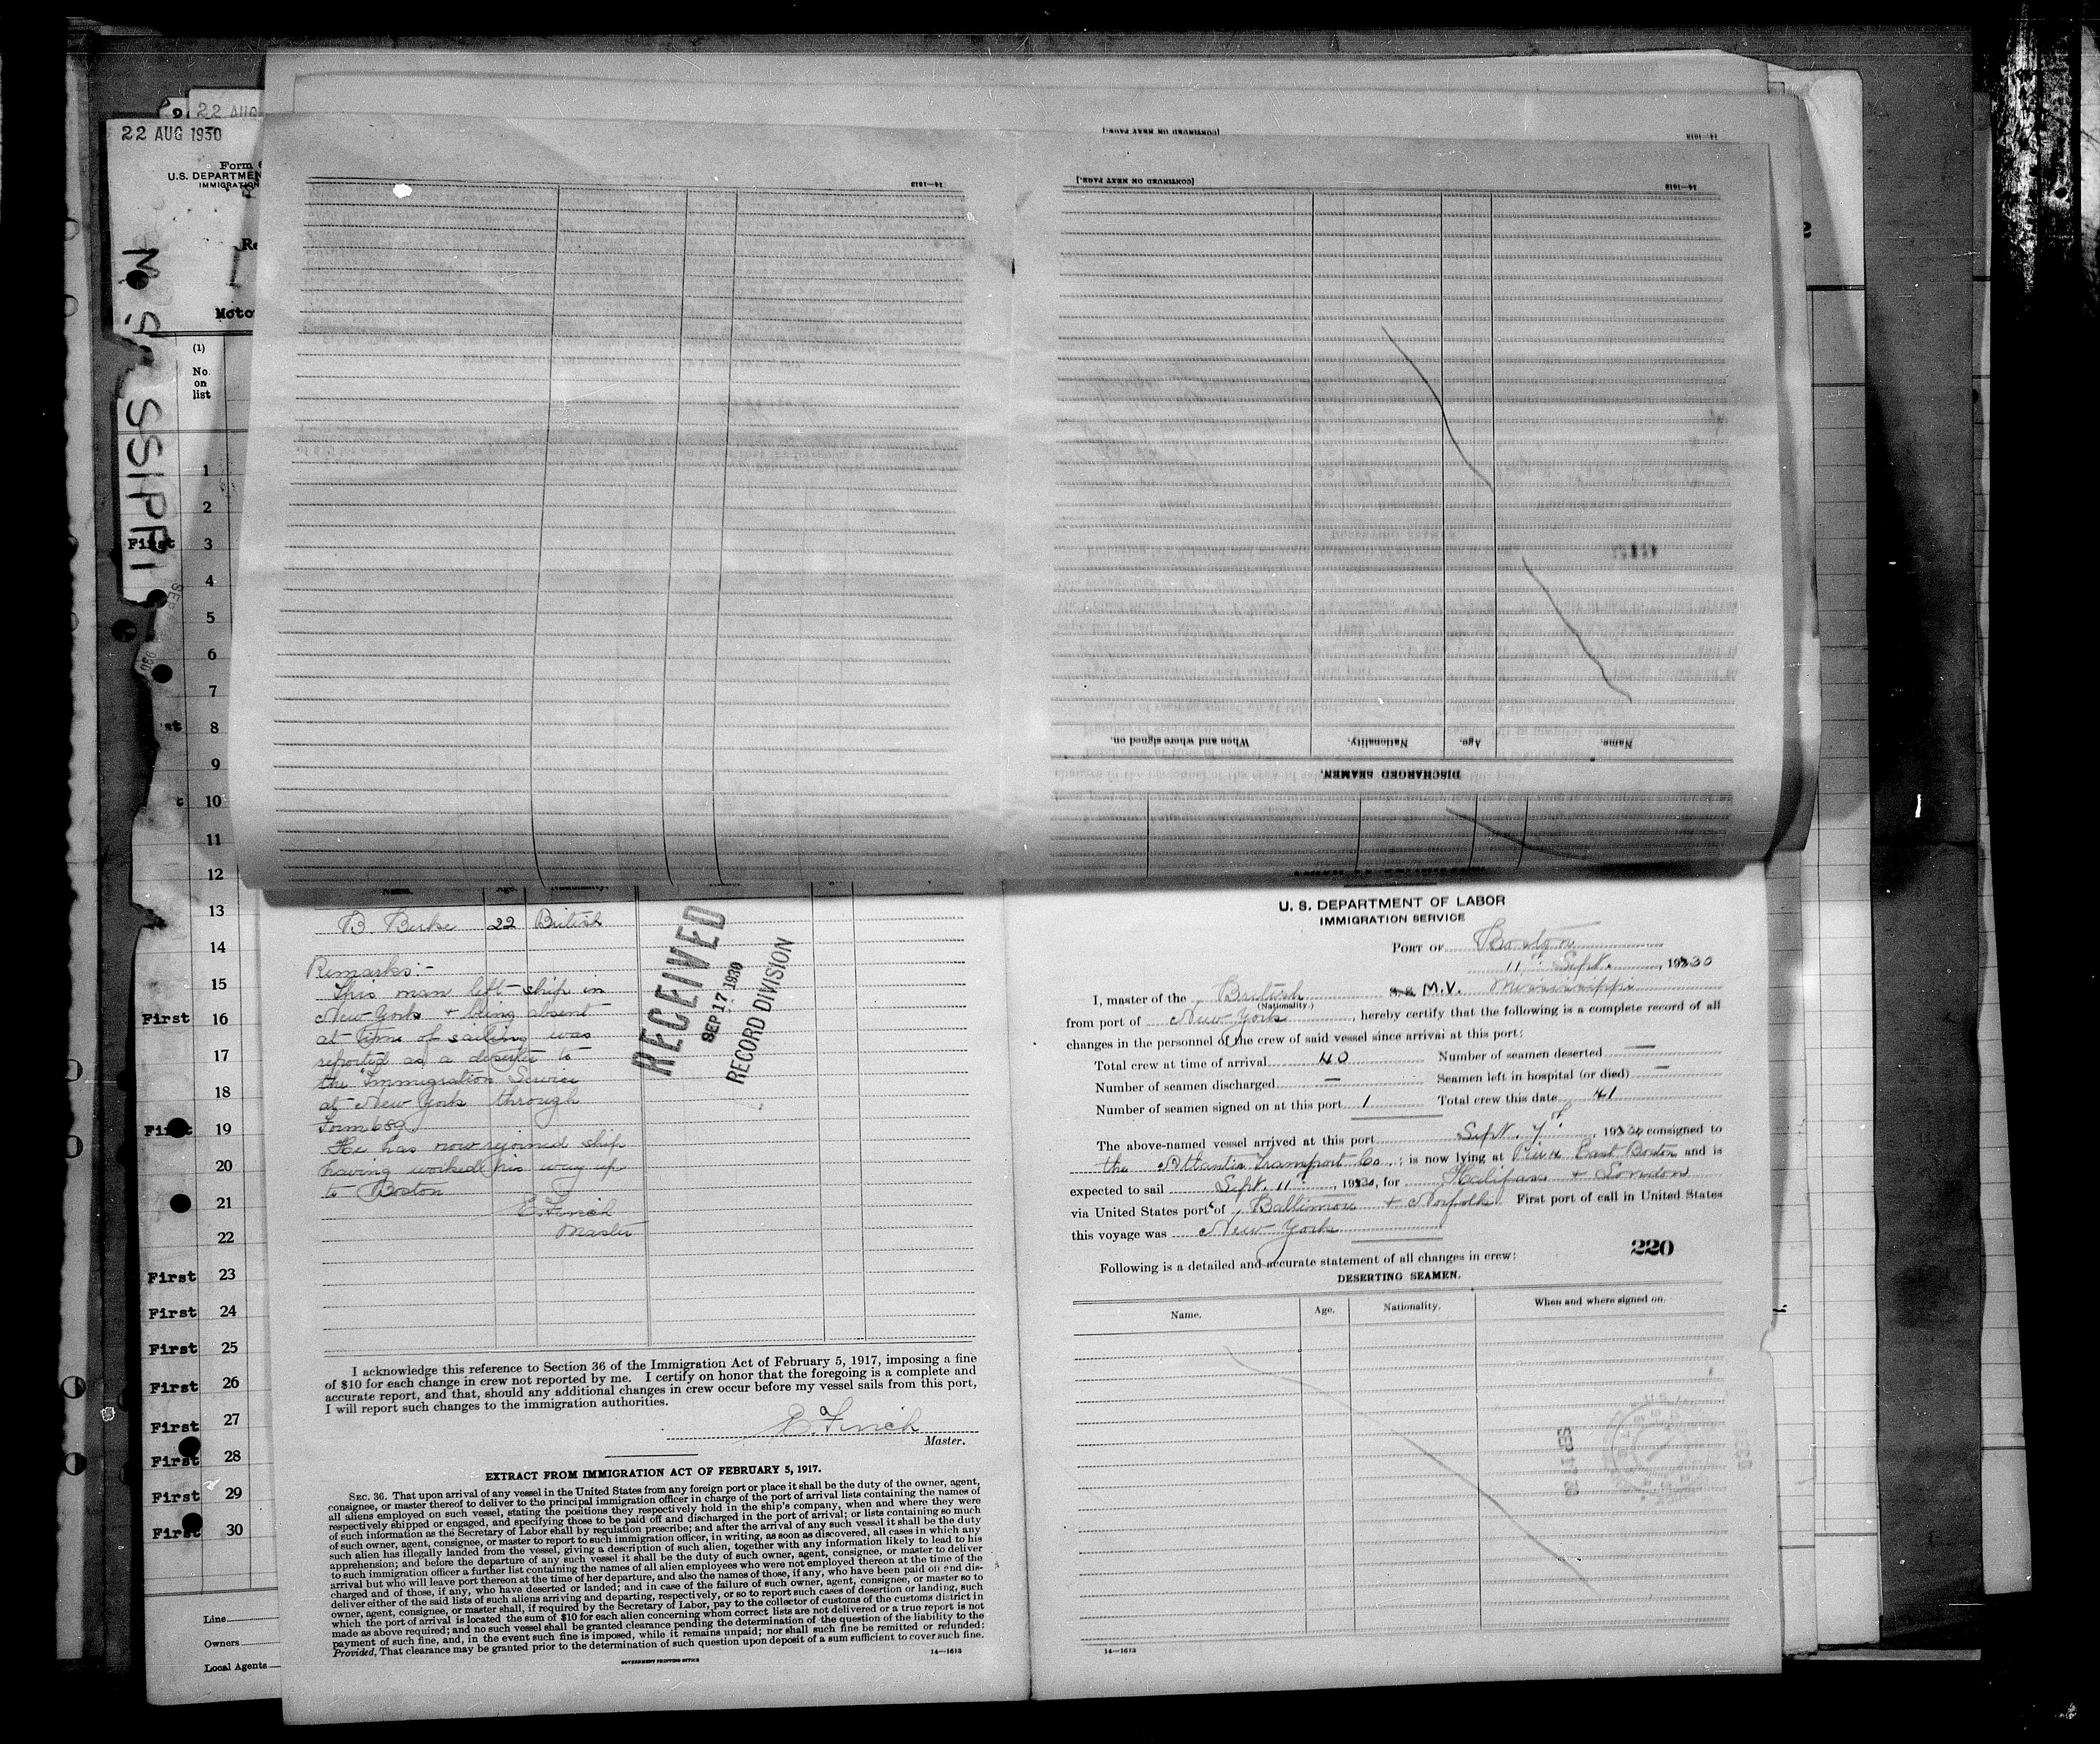 22 AUG
22 AUG 1930
Form
U.S. DEPARTMEN
IMMIGRATION
Moto
(1)
No.
on
list
SSIPPI
1
2
First 3
4
5
6
7
st 8
9
10
11
12
13
14
15
First 16
17
18
First 19
20
21
22
First 23
First 24
First 25
First 26
First 27
First 28
First 29
First 30
Line
Owners
Local Agents
[CONTINUED ON NEXT PAGE.]
14—1613
14—1613
[CONTINUED ON NEXT PAGE.]
14—1613
When and where signed on.
Nationality.
Age.
Name.
DISCHARGED SEAMEN.
Name.
Age.
Nationality.
B. Burke 22 British
Remarks:-
This man left ship in
New York & being absent
at time of sailing was
reported as a deserter to
the Immigration Service
at New York through
Form 689
He has now rejoined ship
having worked his way up
to Boston
E. Finch
Master
RECEIVED
SEP 17 1930
RECORD DIVISION
I acknowledge this reference to Section 36 of the Immigration Act of February 5, 1917, imposing a fine
of $10 for each change in crew not reported by me. I certify on honor that the foregoing is a complete and
accurate report, and that, should any additional changes in crew occur before my vessel sails from this port,
I will report such changes to the immigration authorities.
E. a Finch
Master.
EXTRACT FROM IMMIGRATION ACT OF FEBRUARY 5, 1917.
SEC. 36. That upon arrival of any vessel in the United States from any foreign port or place it shall be the duty of the owner, agent,
consignee, or master thereof to deliver to the principal immigration officer in charge of the port of arrival lists containing the names of
all aliens employed on such vessel, stating the positions they respectively hold in the ship's company, when and where they were
respectively shipped or engaged, and specifying those to be paid off and discharged in the port of arrival; or lists containing so much
of such information as the Secretary of Labor shall by regulation prescribe; and after the arrival of any such vessel it shall be the duty
of such owner, agent, consignee, or master to report to such immigration officer, in writing, as soon as discovered, all cases in which any
such alien has illegally landed from the vessel, giving a description of such alien, together with any information likely to lead to his
apprehension; and before the departure of any such vessel it shall be the duty of such owner, agent, consignee, or master to deliver
to such immigration officer a further list containing the names of all alien employees who were not employed thereon at the time of the
arrival but who will leave port thereon at the time of her departure, and also the names of those, if any, who have been paid off and dis-
charged and of those, if any, who have deserted or landed; and in case of the failure of such owner, agent, consignee, or master so to
deliver either of the said lists of such aliens arriving and departing, respectively, or so to report such cases of desertion or landing, such
owner, agent, consignee, or master shall, if required by the Secretary of Labor, pay to the collector of customs of the customs district in
which the port of arrival is located the sum of $10 for each alien concerning whom correct lists are not delivered or a true report is not
made as above required; and no such vessel shall be granted clearance pending the determination of the question of the liability to the
payment of such fine, and, in the event such fine is imposed, while it remains unpaid; nor shall such fine be remitted or refunded:
Provided, That clearance may be granted prior to the determination of such question upon deposit of a sum sufficient to cover such fine.
GOVERNMENT PRINTING OFFICE
14—1613
U. S. DEPARTMENT OF LABOR
IMMIGRATION SERVICE
PORT OF Boston
11th Sept., 1930
I, master of the British S.S. M.V. Mississippi
(Nationality.)
from port of New York, hereby certify that the following is a complete record of all
changes in the personnel of the crew of said vessel since arrival at this port:
Total crew at time of arrival 40 Number of seamen deserted —
Number of seamen discharged — Seamen left in hospital (or died) —
Number of seamen signed on at this port 1 Total crew this date 41
The above-named vessel arrived at this port Sept. 7th, 1930 consigned to
the Atlantic Transport Co.; is now lying at Pier East Boston and is
expected to sail Sept. 11th, 1930, for Halifax & London
via United States ports of Baltimore & Norfolk First port of call in United States
this voyage was New York
220
Following is a detailed and accurate statement of all changes in crew:
DESERTING SEAMEN.
Name. Age. Nationality. When and where signed on.
14—1613